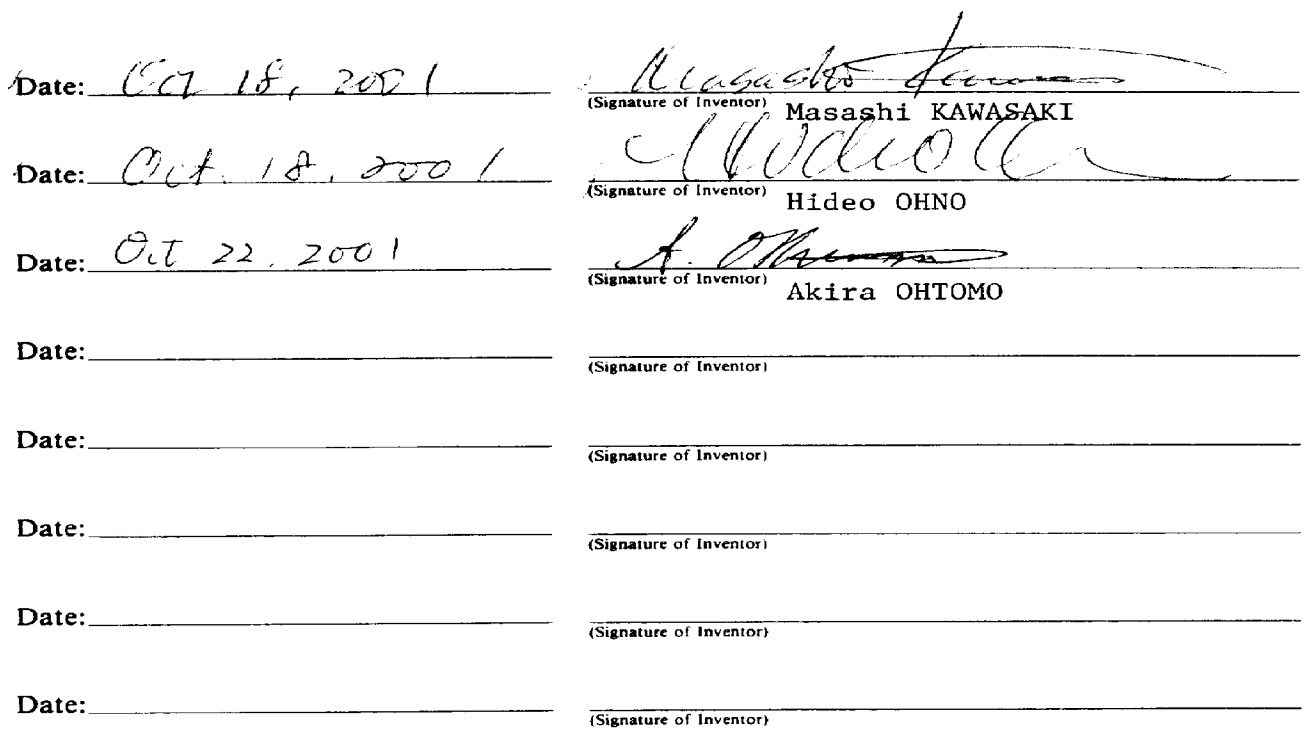 Date: Oct 18, 2001 Masashi Kawasaki
(Signature of Inventor) Masashi KAWASAKI
Date: Oct. 18, 2001 Hideo Ohno
(Signature of Inventor) Hideo OHNO
Date: Oct 22, 2001 A. Ohtomo
(Signature of Inventor) Akira OHTOMO
Date:
(Signature of Inventor)
Date:
(Signature of Inventor)
Date:
(Signature of Inventor)
Date:
(Signature of Inventor)
Date:
(Signature of Inventor)